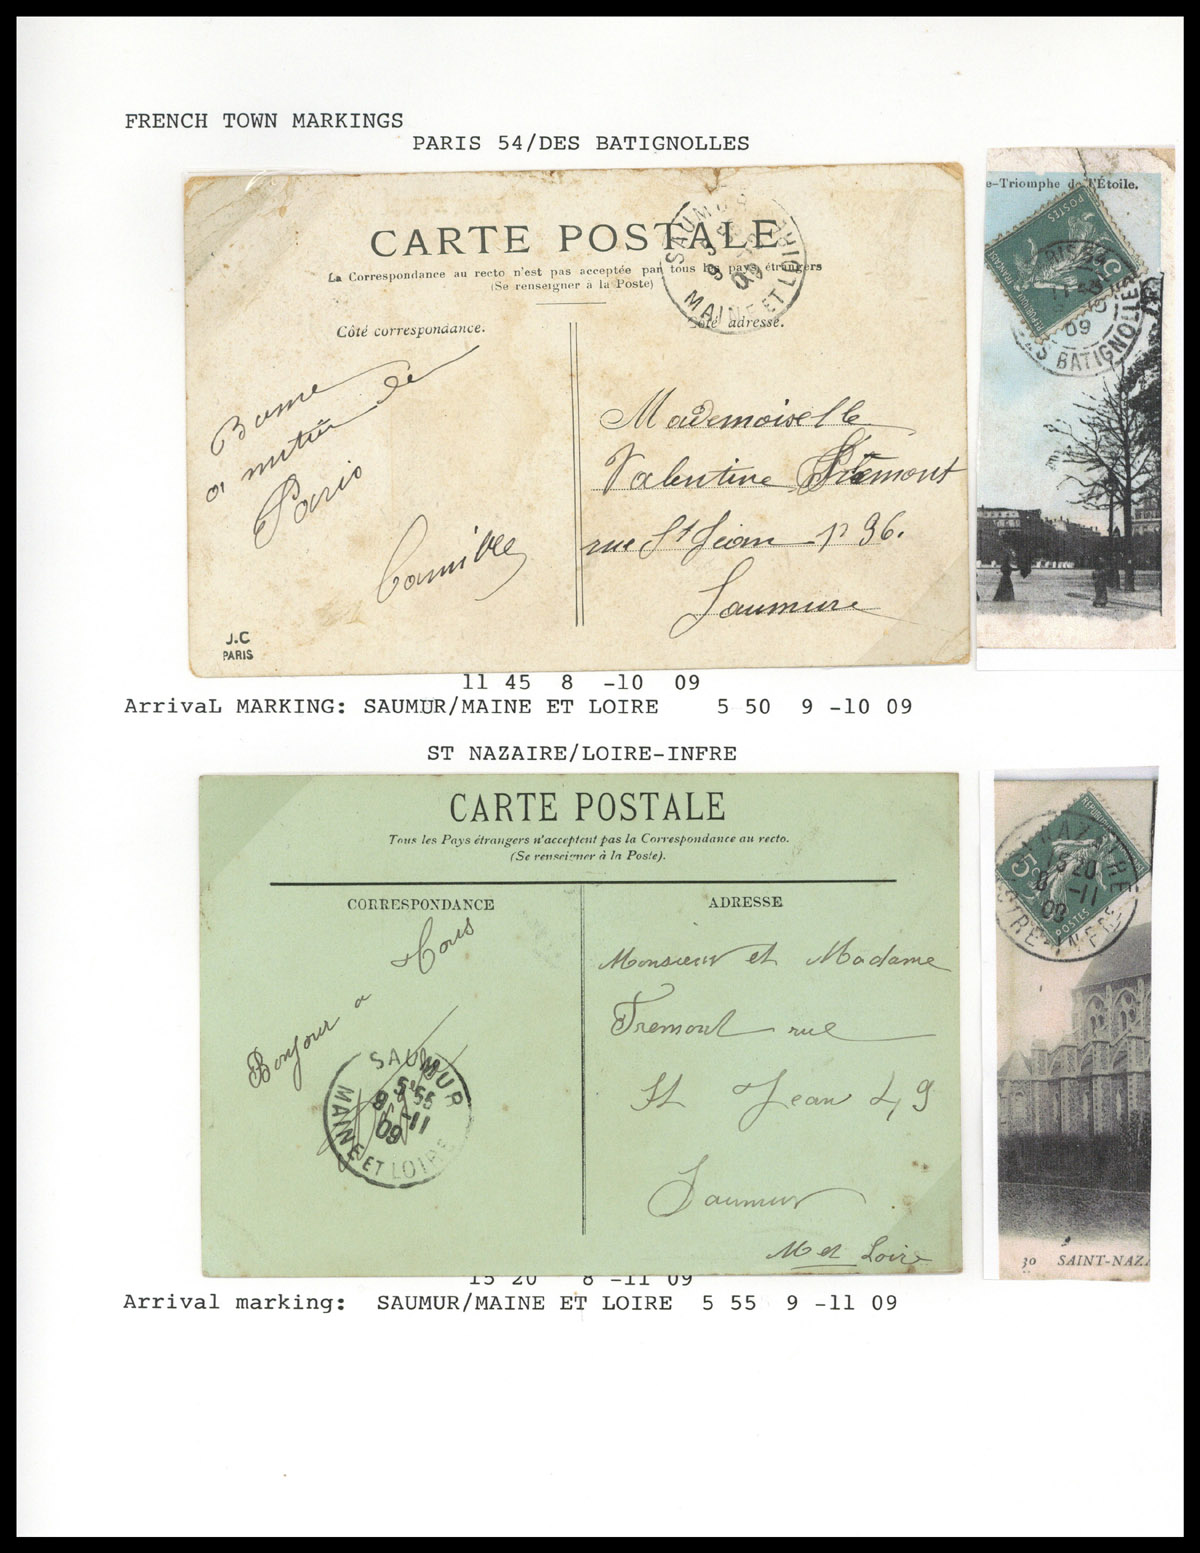 FRENCH TOWN MARKINGS
PARIS 54/DES BATIGNOLLES
CARTE POSTALE
La Correspondance au recto n'est pas acceptée par tous les pays étrangers
(Se renseigner à la Poste)
Côté correspondance.
Côté adresse.
SAUMUR
MAINE ET LOIRE
Bonne
Paris
Camille
Mademoiselle
Valentine Trémont
rue St Jean n° 36.
Saumure
J.C
PARIS
e-Triomphe de l'Étoile.
POSTES
5c
09
BATIGNOLLES
11 45 8 -10 09
ArrivaL MARKING: SAUMUR/MAINE ET LOIRE 5 50 9 -10 09
ST NAZAIRE/LOIRE-INFRE
CARTE POSTALE
Tous les Pays étrangers n'acceptent pas la Correspondance au recto.
(Se renseigner à la Poste).
CORRESPONDANCE
ADRESSE
Bonjour a
Tous
SAUMUR
5 55
9 -11
09
MAINE ET LOIRE
Monsieur et Madame
Tremont rue
St Jean 49
Saumur
M et Loire
NAZAIRE
15 20
8 -11
09
5c
POSTES
30 SAINT-NAZA
15 20 8 -11 09
Arrival marking: SAUMUR/MAINE ET LOIRE 5 55 9 -11 09